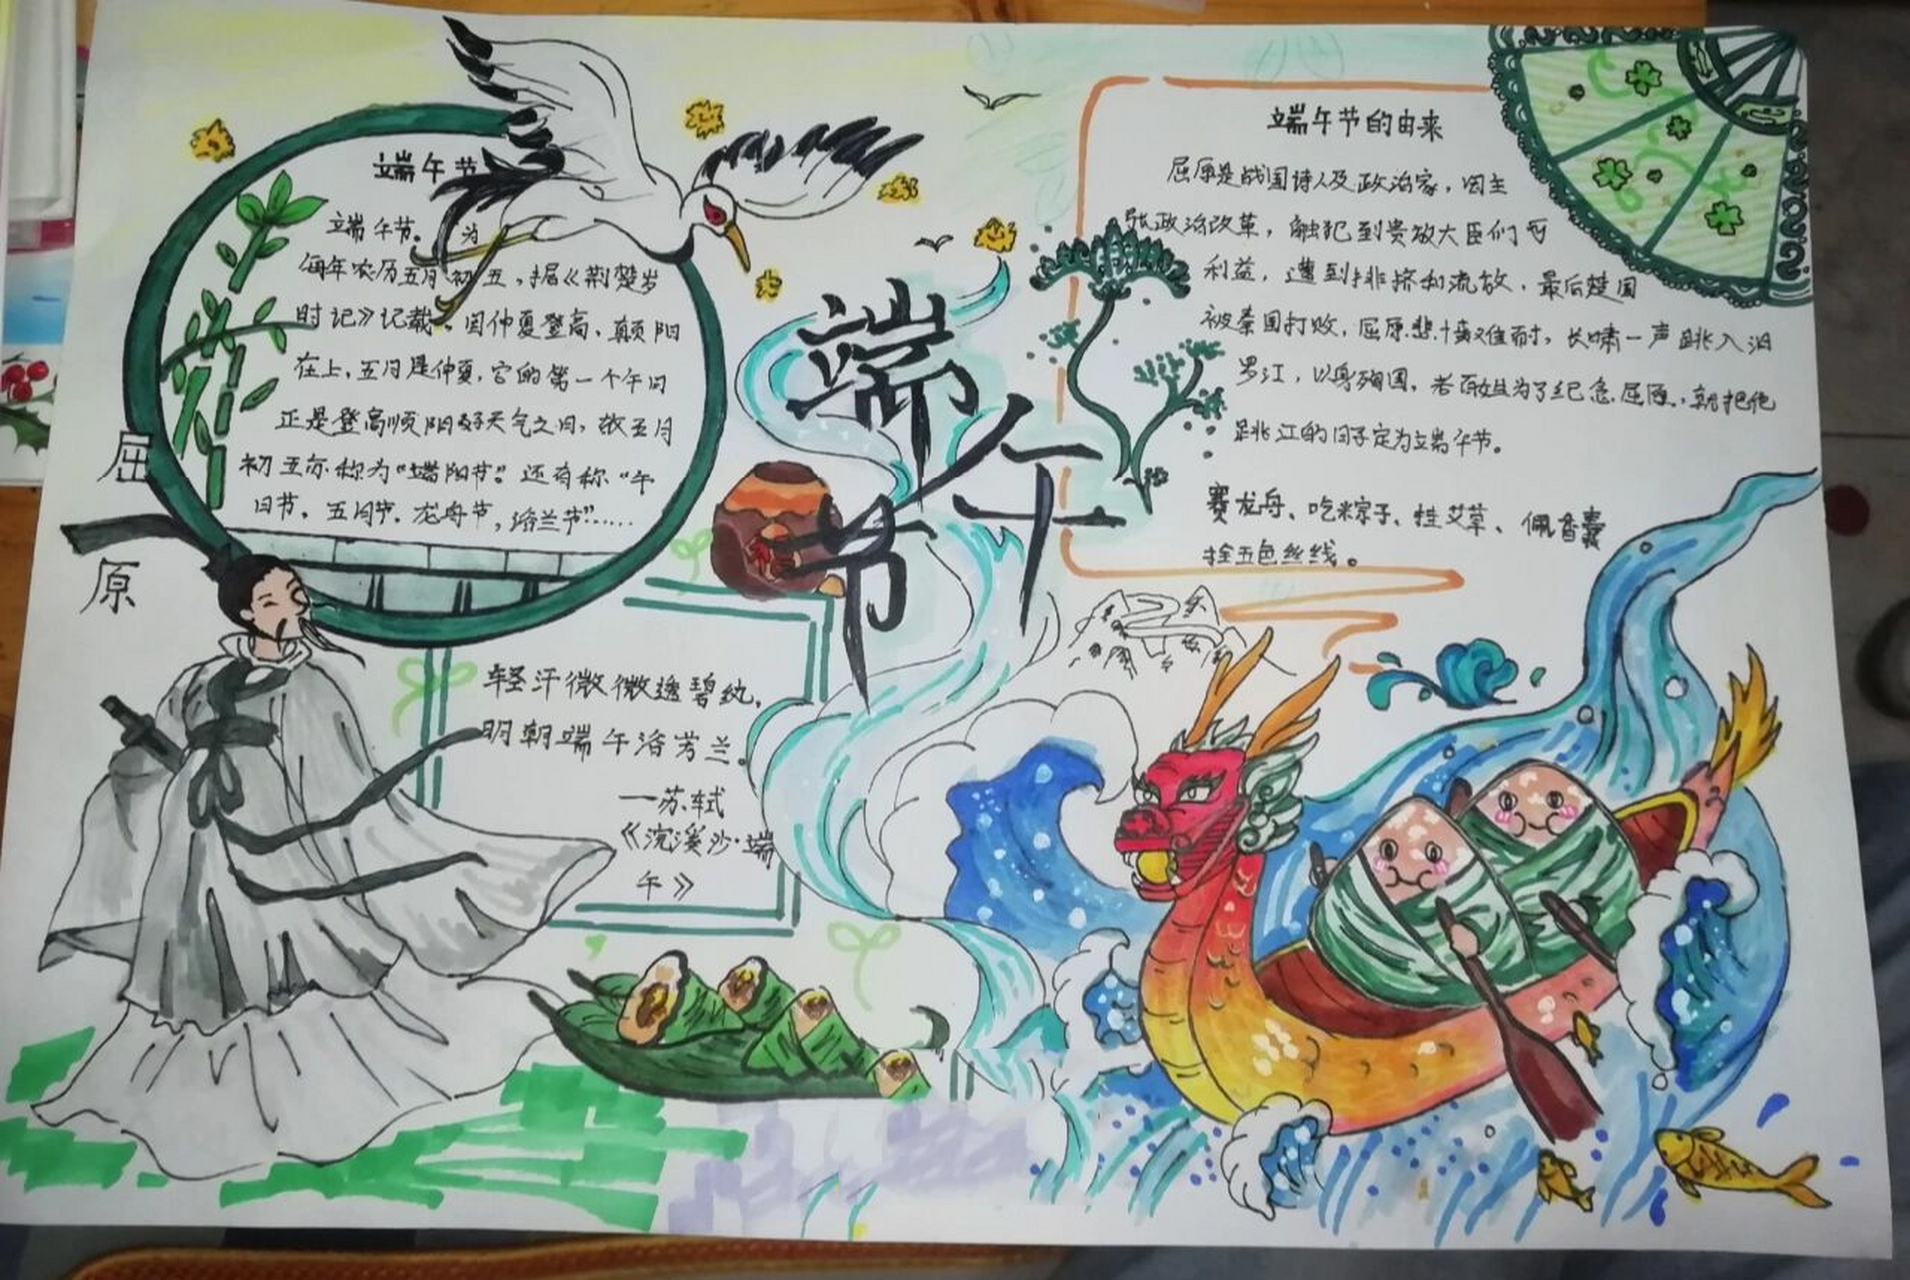 端午节
端午节。为
每年农历五月初五,据《荆楚岁
时记》记载。因仲夏登高、颠阳
在上,五月是仲夏,它的第一个午日
正是登高顺阳好天气之日,故五月
初五亦称为“端阳节”。还有称“午
日节、五月节、龙舟节,浴兰节”……
屈
原
轻汗微微透碧纨,
明朝端午浴芳兰。
—苏轼
《浣溪沙·端
午》
端午节
端午节的由来
屈原是战国诗人及政治家,因主
张政治改革,触犯到贵族大臣们的
利益,遭到排挤和流放,最后楚国
被秦国打败,屈原悲愤难耐,长啸一声跳入汨
罗江,以身殉国。老百姓为了纪念屈原,就把他
跳江的日子定为端午节。
赛龙舟、吃粽子、挂艾草、佩香囊
拴五色丝线。